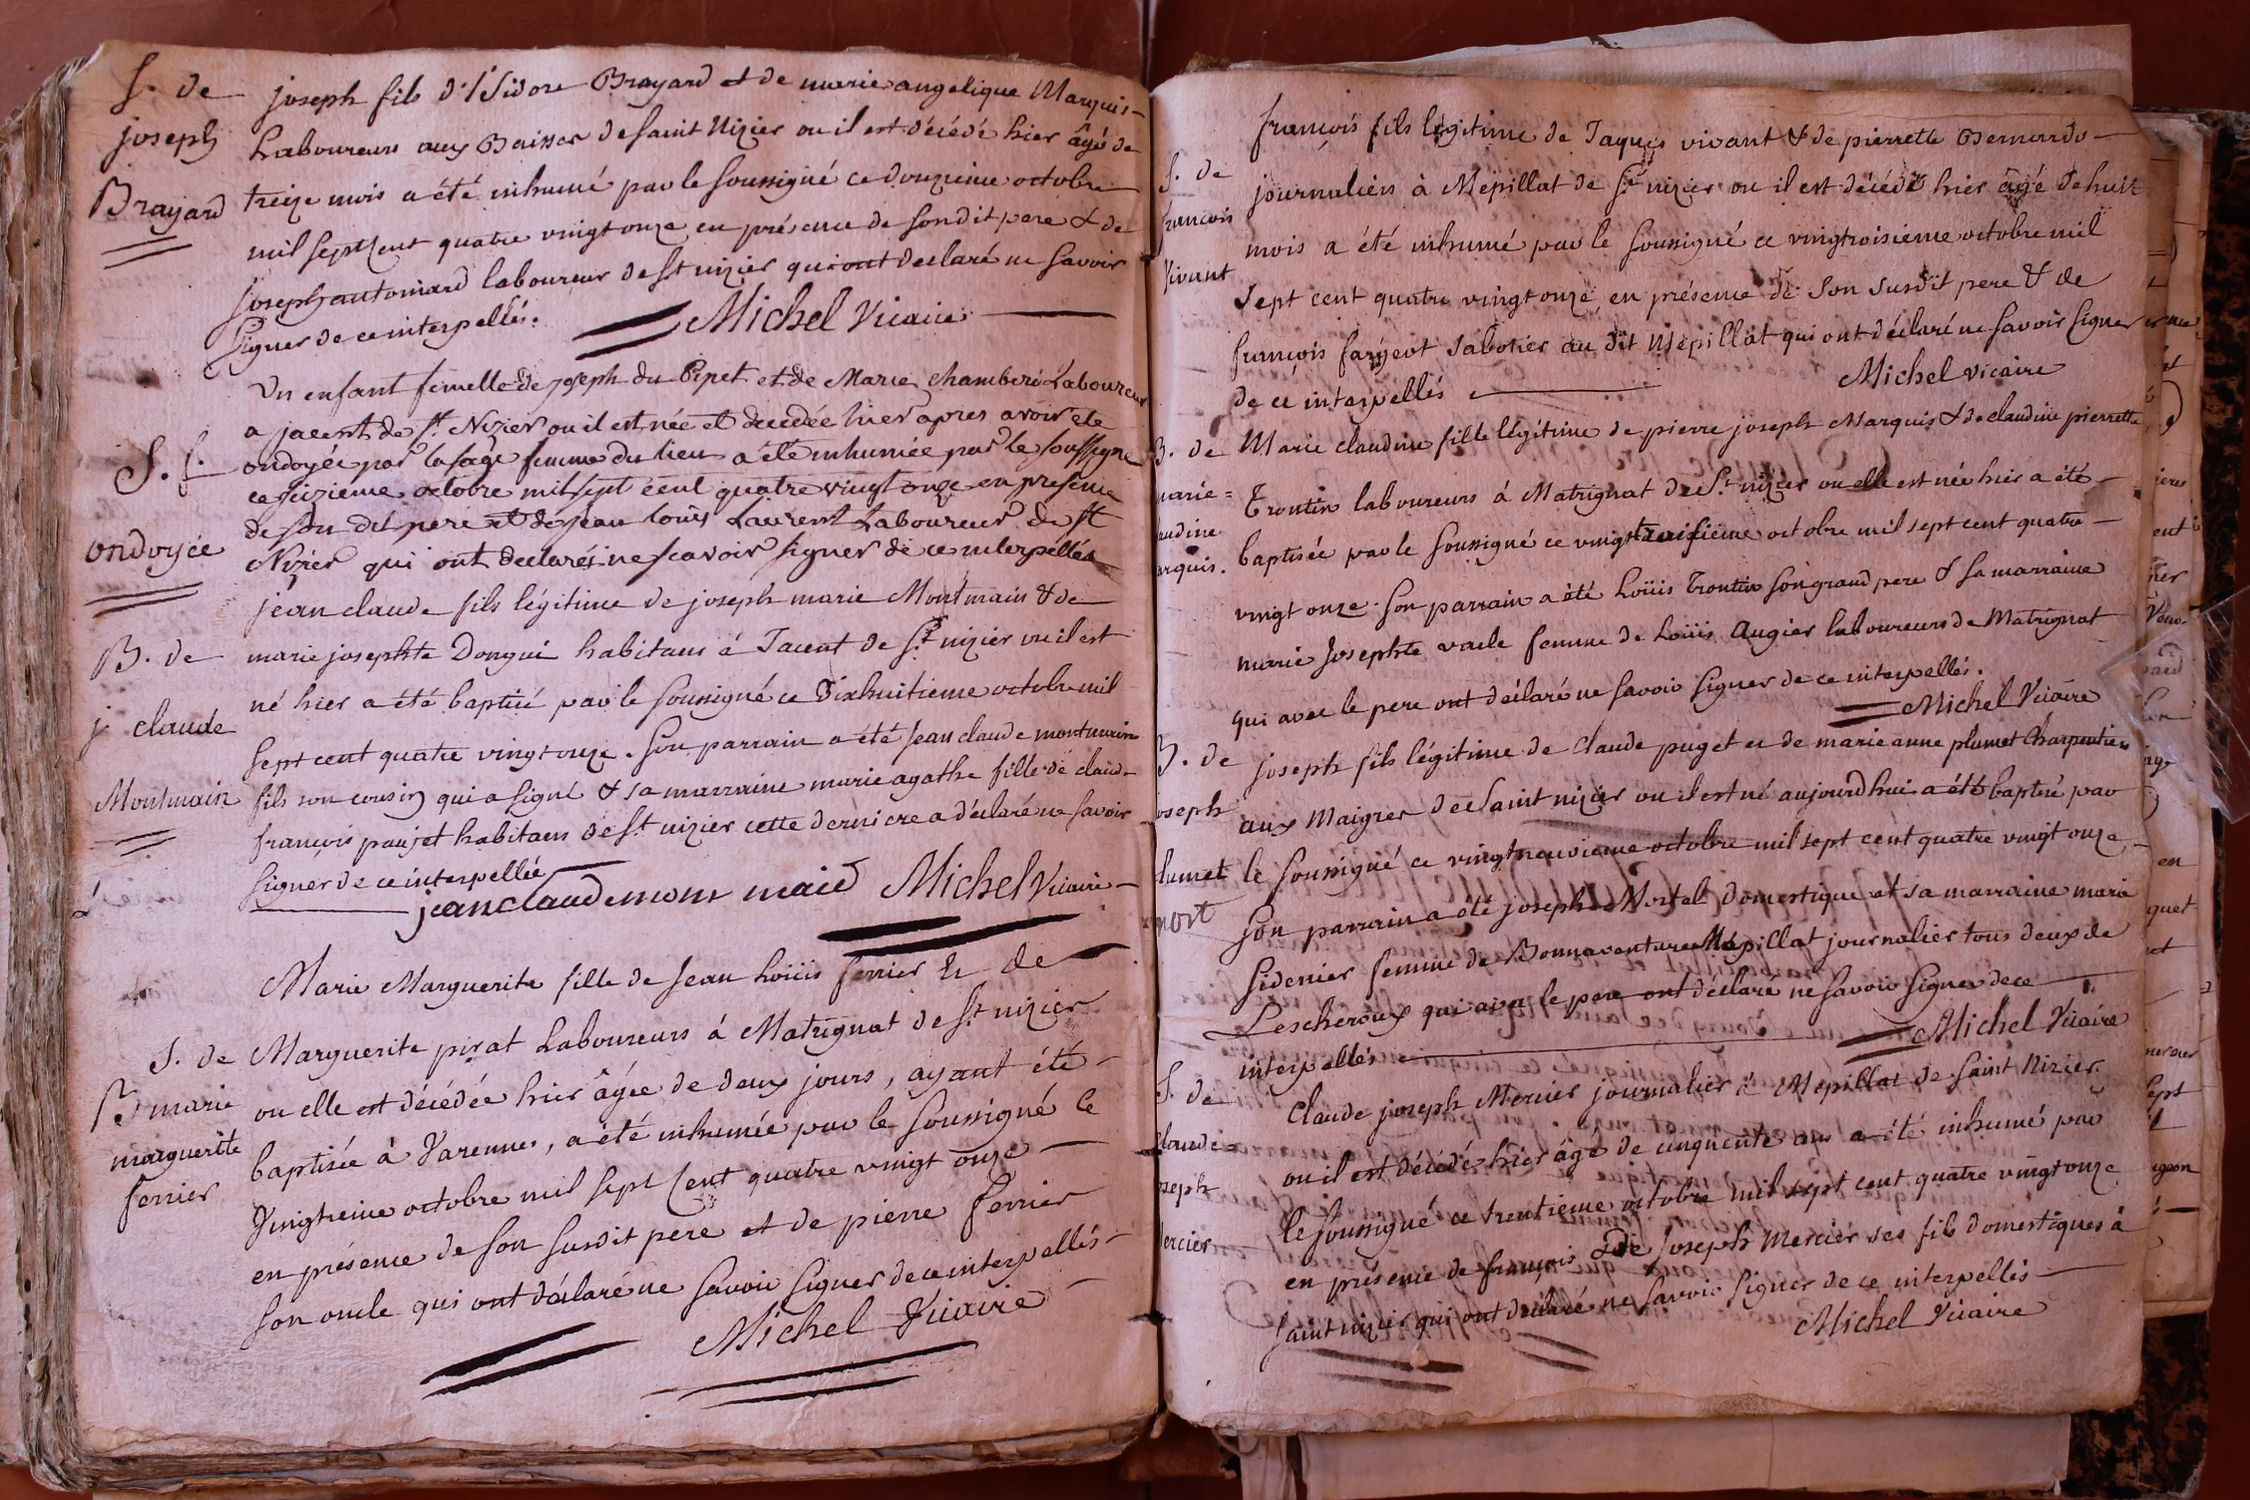 S. de
joseph
Brayard
joseph fils d'Isidore Brayard et de marie angelique Marquis
Laboureurs aux Baisses de saint Nizier ou il est décédé hier âgé de
treize mois a été inhumé par le soussigné ce douzieme octobre
mil sept cent quatre vingt onze en présence de sondit pere & de
joseph antoinard laboureur de st nizier qui ont declaré ne savoir
signer de ce interpellés.
Michel Vicaire
S. f.
ondoyée
Un enfant femelle de joseph du Pipet et de Marie chamberé Laboureur
a jacent de st. Nizier ou il est née et decedée hier apres avoir ete
ondoyée par la sage femme du lieu a été inhumée par le soussigne
ce seizieme octobre mil sept cent quatre vingt onze en presence
de son dit pere et de jean louis Laurent Laboureur de st
Nizier qui ont declarés ne scavoir signer de ce interpellés
B. de
j claude
Montmain
jean claude fils légitime de joseph marie Montmain & de
marie josephte Dongui habitans á Jacent de St. nizier ou il est
né hier a été baptisé par le soussigné ce dixhuitieme octobre mil
sept cent quatre vingt onze. Son parrain a été jean claude montmain
fils son cousin qui a signé & sa marraine marie agathe fille de claude
françois paujet habitans de St. nizier cette derniere a déclaré ne savoir
signer de ce interpellée
jean claude mont maid Michel Vicaire
S. de
marie
marguerite
ferrier
Marie Marguerite fille de Jean Loüis ferrier & de
Marguerite pirat Laboureurs á Matrignat de St. nizier
ou elle est décédée hier âgée de deux jours, ayant été
baptisée à Varennes, a été inhumée par le soussigné ce
Vingtieme octobre mil sept cent quatre vingt onze
en présence de son susdit pere et de pierre ferrier
son oncle qui ont déclaré ne savoir signer de ce interpellés
Michel Vicaire
S. de
françois
Vivant
françois fils légitime de Jaques vivant & de pierrette Bernardo
journaliers à Mépillat de St. nizier ou il est décédé hier âgé de huit
mois a été inhumé par le soussigné ce vingtroisieme octobre mil
sept cent quatre vingt onze en présence de son susdit pere & de
françois fargeot sabotier au dit Mépillat qui ont déclaré ne savoir signer
de ce interpellés
Michel vicaire
B. de
marie
claudine
marquis.
Marie claudine fille légitime de pierre joseph Marquis & de claudine pierrette
Trontin laboureurs á Matrignat de St. nizier ou elle est née hier a été
baptisée par le soussigné ce vingtroisieme octobre mil sept cent quatre
vingt onze. Son parrain a été Loüis Trontin son grand pere & sa marraine
marie Josephte vacle femme de Loüis Augier laboureurs de Matrignat
qui avec le pere ont déclaré ne savoir signer de ce interpellés.
Michel Vicaire
B. de
joseph
plumet
mort
joseph fils légitime de claude puget et de marie anne plumet Charpentiers
aux Maigres de Saint nizier ou il est né aujourdhui a été baptisé par
le soussigné ce vingtneuvieme octobre mil sept cent quatre vingt onze,
Son parrain a été joseph Mortel domestique et sa marraine marie
Sidenier femme de Bonnaventure Mépillat journalier tous deux de
Lescheroux qui avec le pere ont déclaré ne savoir signer de ce
interpellés
Michel Vicaire
S. de
Claude
joseph
Mercier
Claude joseph Mercier journalier á Mepillat de Saint Nizier
ou il est décédé hier âgé de cinquente ans a été inhumé par
le soussigné ce trentieme octobre mil sept cent quatre vingt onze
en présence de françois & de Joseph Mercier ses fils domestiques á
saint nizier qui ont déclaré ne savoir signer de ce interpellés
Michel Vicaire